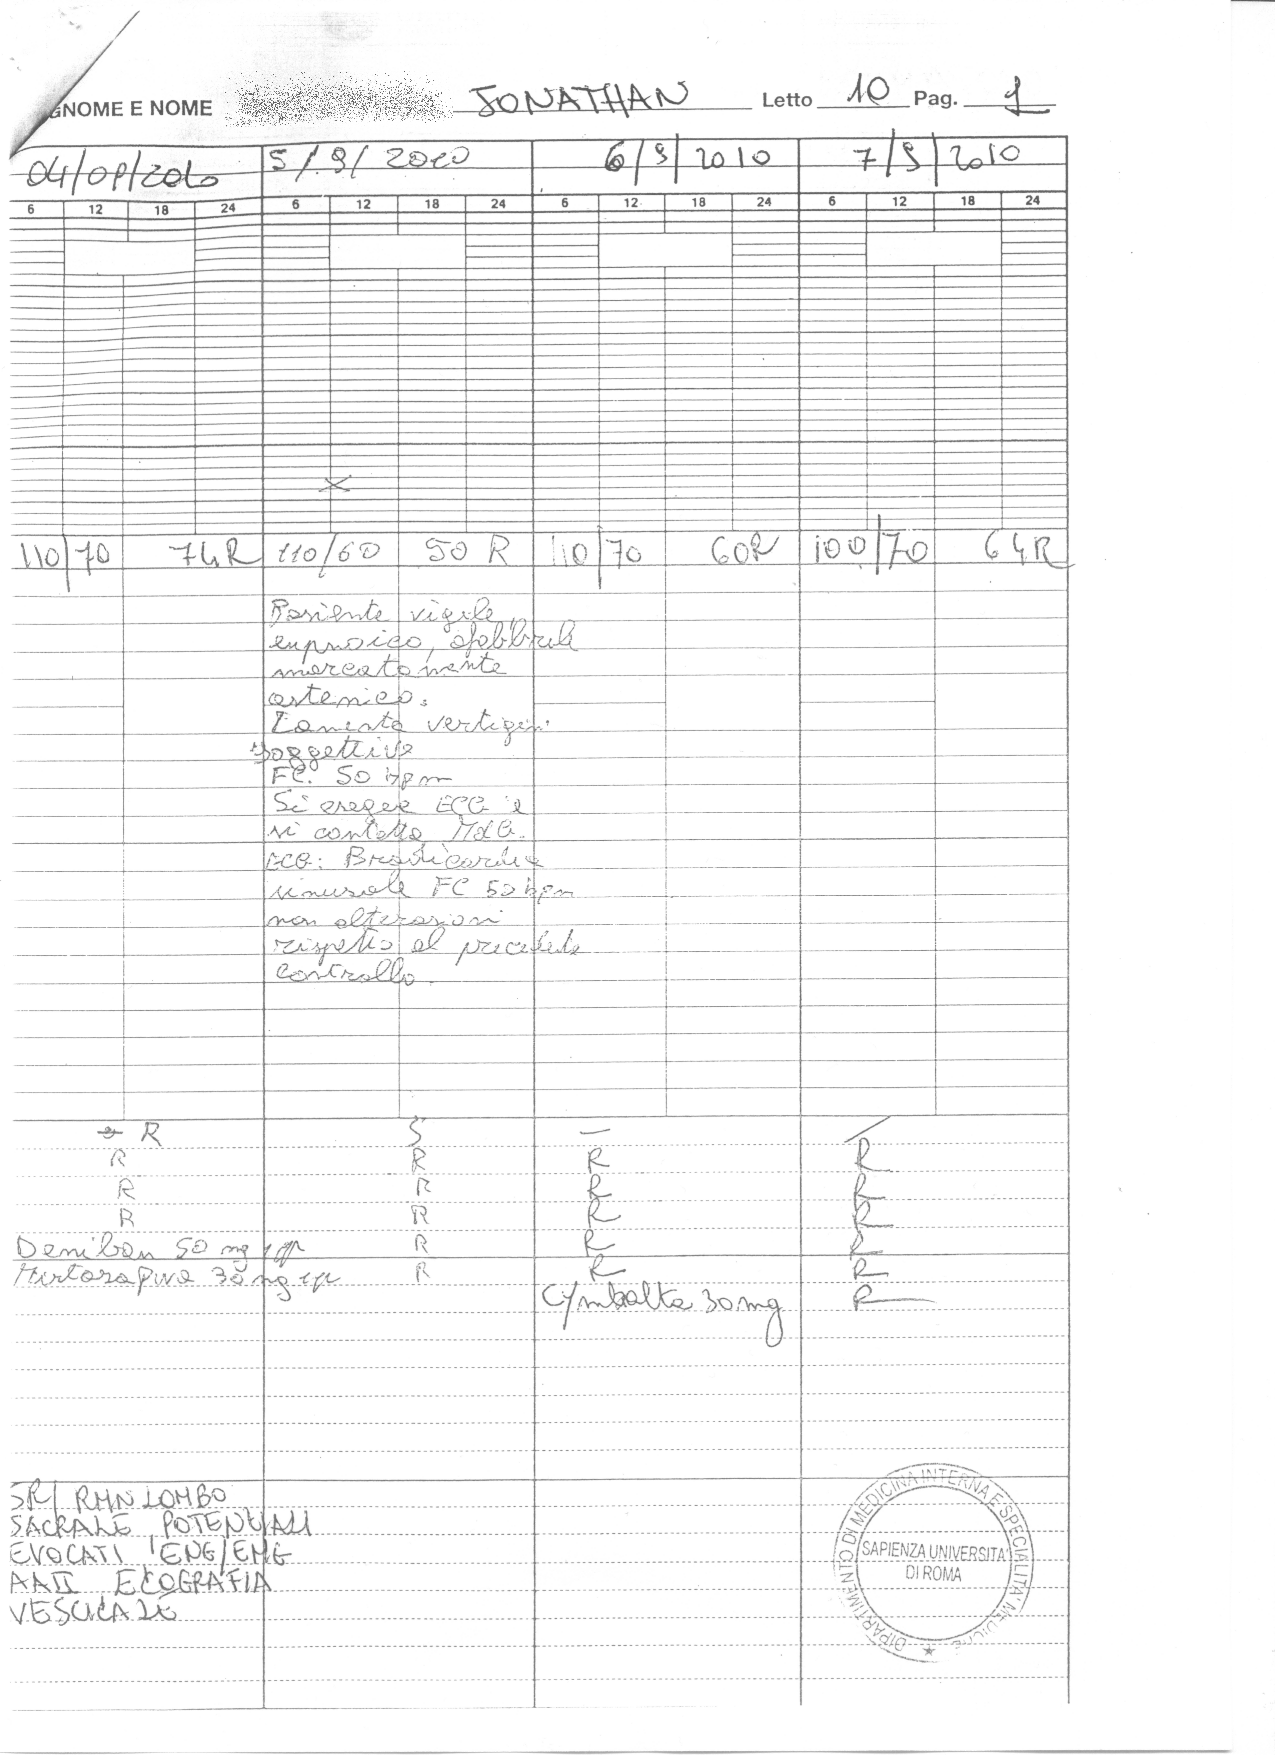 GNOME E NOME JONATHAN Letto 10 Pag. 1
04/09/2010 5/9/2010 6/9/2010 7/9/2010
6 12 18 24 6 12 18 24 6 12 18 24 6 12 18 24
X
110/70 74R 110/60 50 R 110/70 60R 100/70 64R
Paziente vigile,
eupnoico, afebbrile
marcatamente
astenico.
Lamenta vertigini
soggettive
FC. 50 bpm
Si esegue ECG e
si contatta MdG.
ECG: Bradicardia
sinusale FC 50 bpm
non alterazioni
rispetto al precedente
controllo.
R S — /
R R R R
R R R R
R R R R
Deniban 50 mg 1 cp R R R
Mirtazapina 30 mg 1 cp R R R
Cymbalta 30 mg R
SR/ RMN LOMBO
SACRALE, POTENZIALI
EVOCATI, ENG/EMG
AAII ECOGRAFIA
VESCICALE
DIPARTIMENTO DI MEDICINA INTERNA E SPECIALITA' MEDICHE
SAPIENZA UNIVERSITA'
DI ROMA